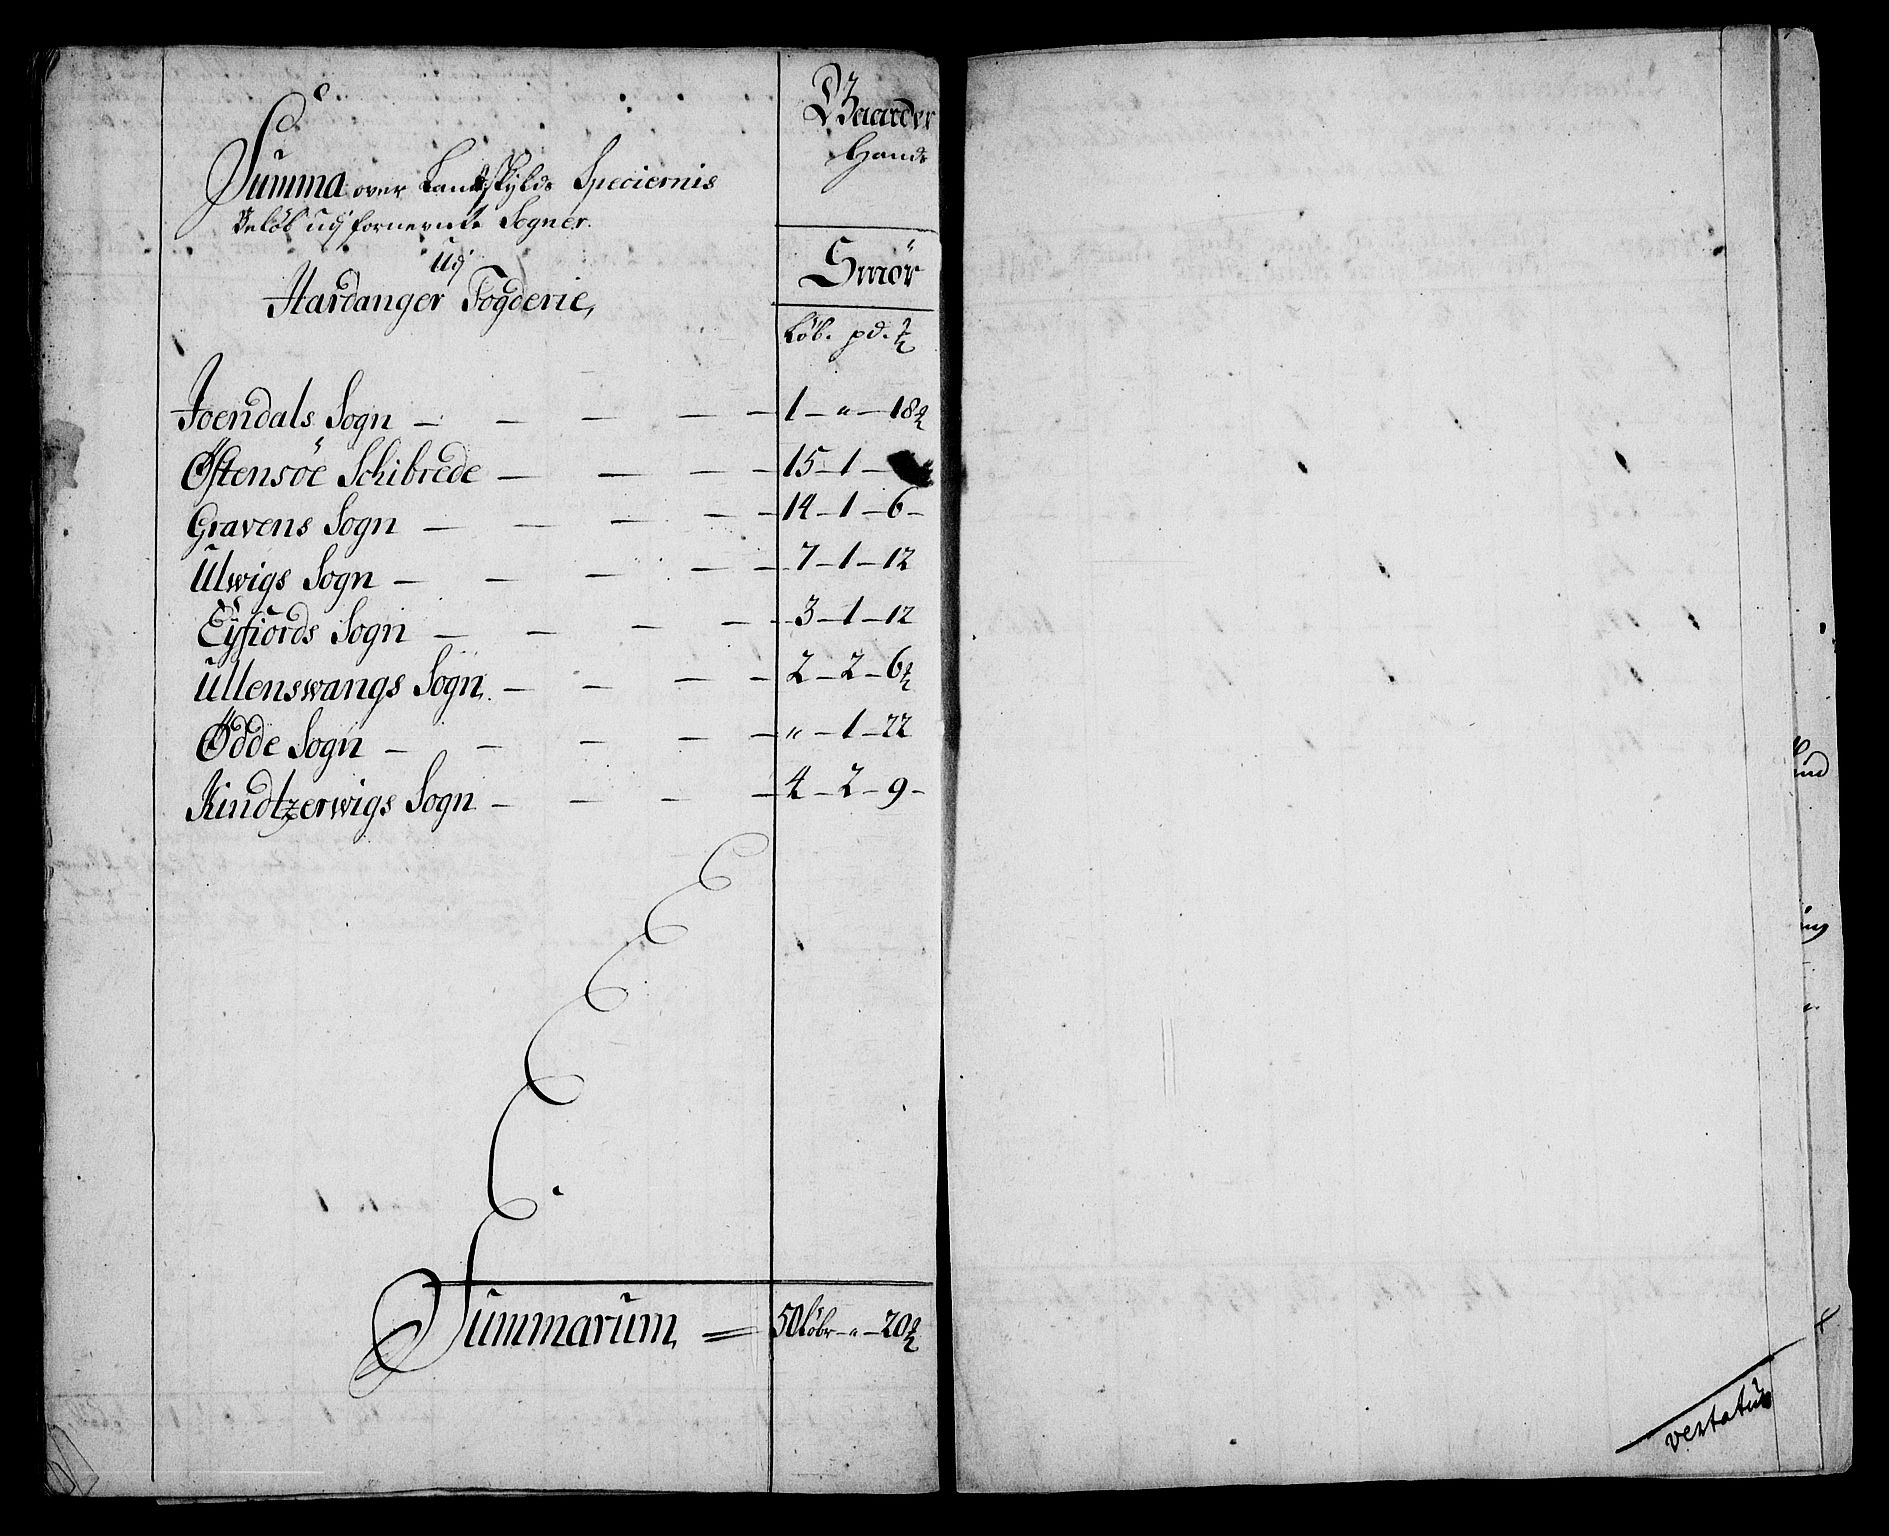 Summa over Landskylds Speciernis
Beløb udj fornernte Sogner.
Udj
Hardanger Fogderie,
Gaarder
Hands
Smör
Löb. pd. ℔
Joendals Sogn — — — — — 1 — " — 18½
Östensöe Schibrede — — — — 15 — 1 —
Gravens Sogn — — — — — 14 — 1 — 6 —
Ulwigs Sogn — — — — — 7 — 1 — 12
Eyfiords Sogn — — — — — 3 — 1 — 12
Ullenswangs Sogn — — — — 2 — 2 — 6½
Ödde Sogn — — — — — " — 1 — 22
Kindtzerwigs Sogn — — — — 4 — 2 — 9 —
Summarum = 50 löbr — " — 20½
vertatur